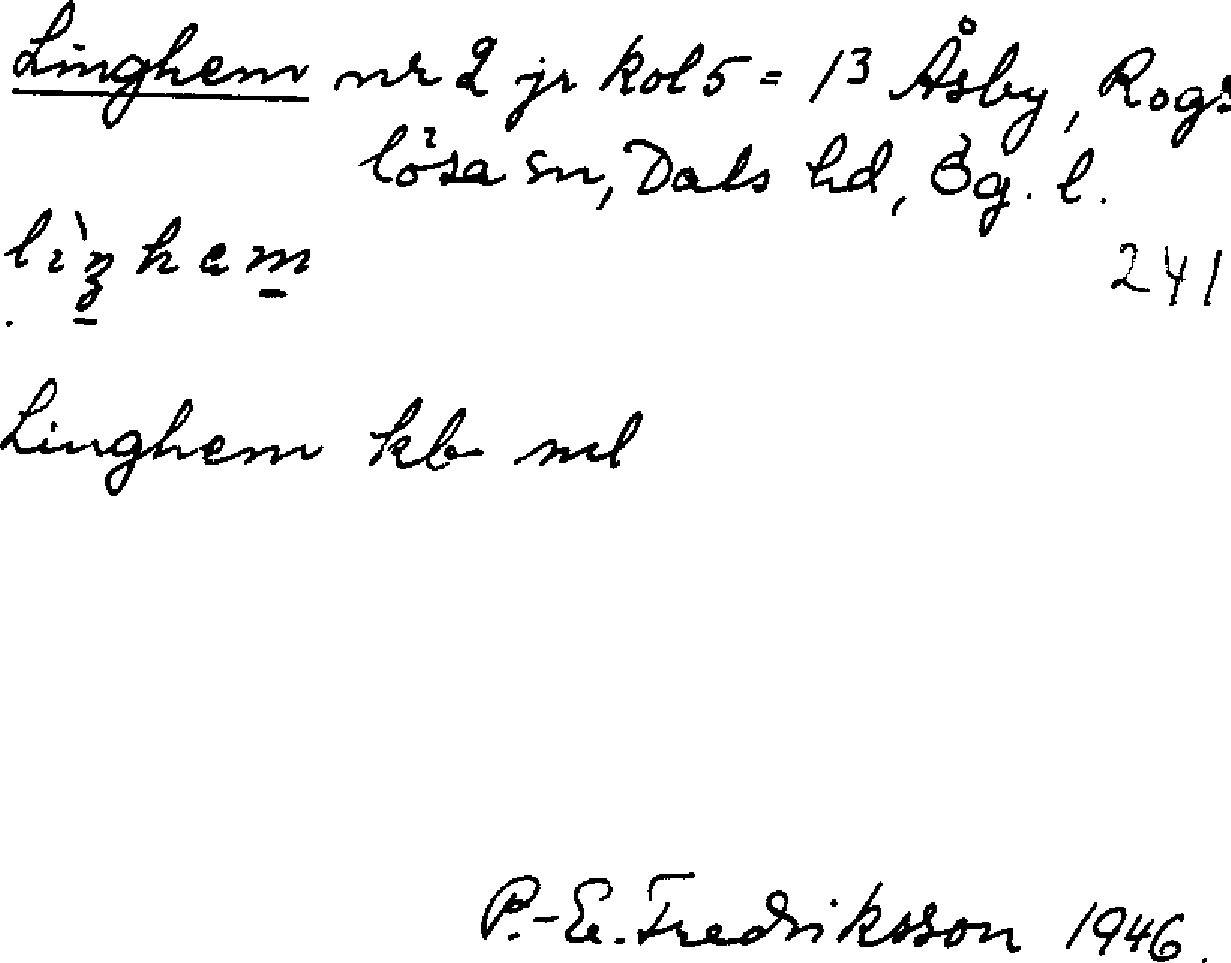 Linghem nr 2 jr kol 5 = 13 Åsby, Rogs
lösa sn, Dals hd, Ög. l.
lìŋhem
241
Linghem kb ml
P.-E. Fredriksson 1946.